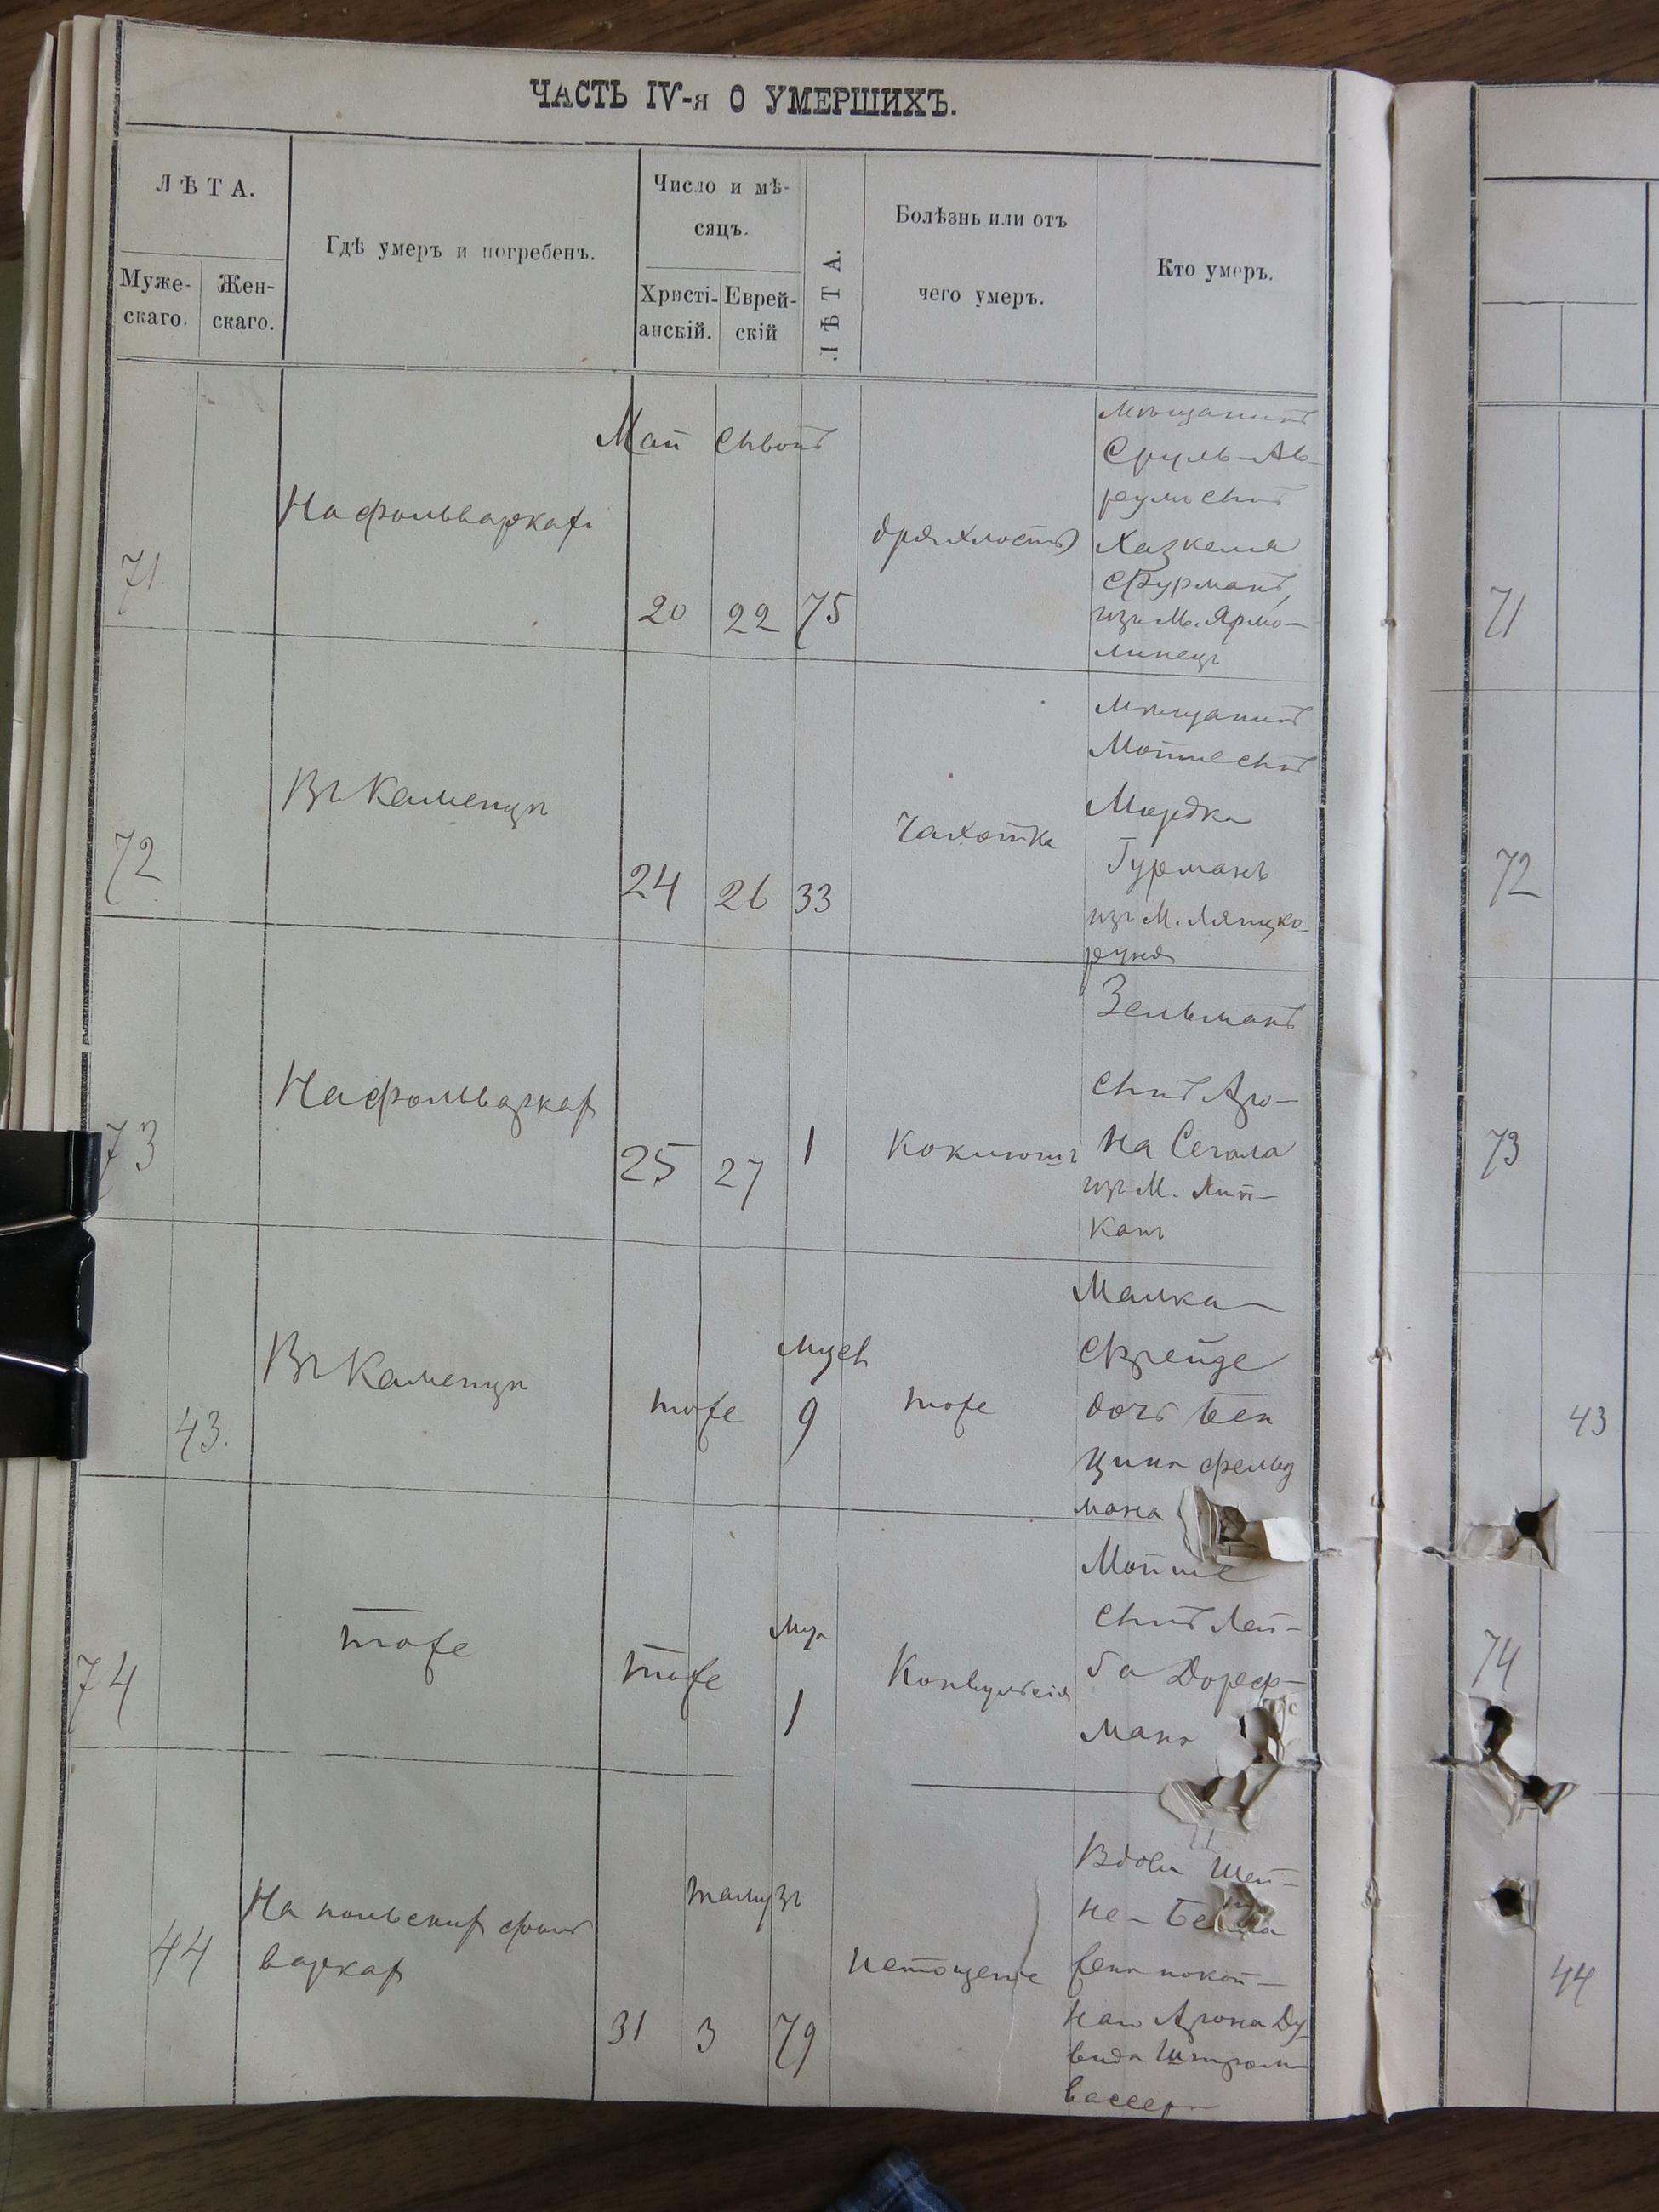 ЧАСТЬ IV-я О УМЕРШИХЪ.
ЛѢТА.
Муже-
скаго.
Жен-
скаго.
Гдѣ умеръ и погребенъ.
Число и мѣ-
сяцъ.
Христі-
анскій.
Еврей-
скій
ЛѢТА.
Болѣзнь или отъ
чего умеръ.
Кто умеръ.
71
На фольварках
Май
20
Сивонъ
22
75
дряхлость
мѣщанинъ
Сруль-Ав-
реумъ сынъ
Хазкеля
Фурманъ,
изъ м. Ярмо-
линецъ
71
72
Въ Каменцѣ
24
26
33
Чахотка
мѣщанинъ
Мошше сынъ
Мордка
Гурманъ
изъ м. Ляпцко-
руня
72
73
На фольварках
25
27
1
Коклюшъ
Зельманъ
сынъ Аро-
на Сегала
изъ м. Лип-
канъ
73
43.
Въ Каменцѣ
тоже
мусц
9
тоже
Малка
Фрейде
дочь Бен
циона Фельд
мана
43
74
тоже
тоже
1
Конвульсія
Мошше
сынъ Лей-
ба Дорф-
мана
74
44
На польских фоль
варках
31
тамузъ
3
79
истощеніе
Вдова Шей-
не-
жена покой-
наго Арона Ду
вида Штром
вассера
44